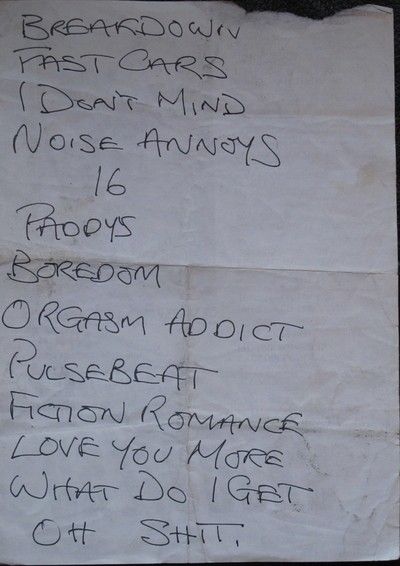 BREAKDOWN
FAST CARS
I DON'T MIND
NOISE ANNOYS
16
PADDYS
BOREDOM
ORGASM ADDICT
PULSEBEAT
FICTION ROMANCE
LOVE YOU MORE
WHAT DO I GET
OH SHIT.